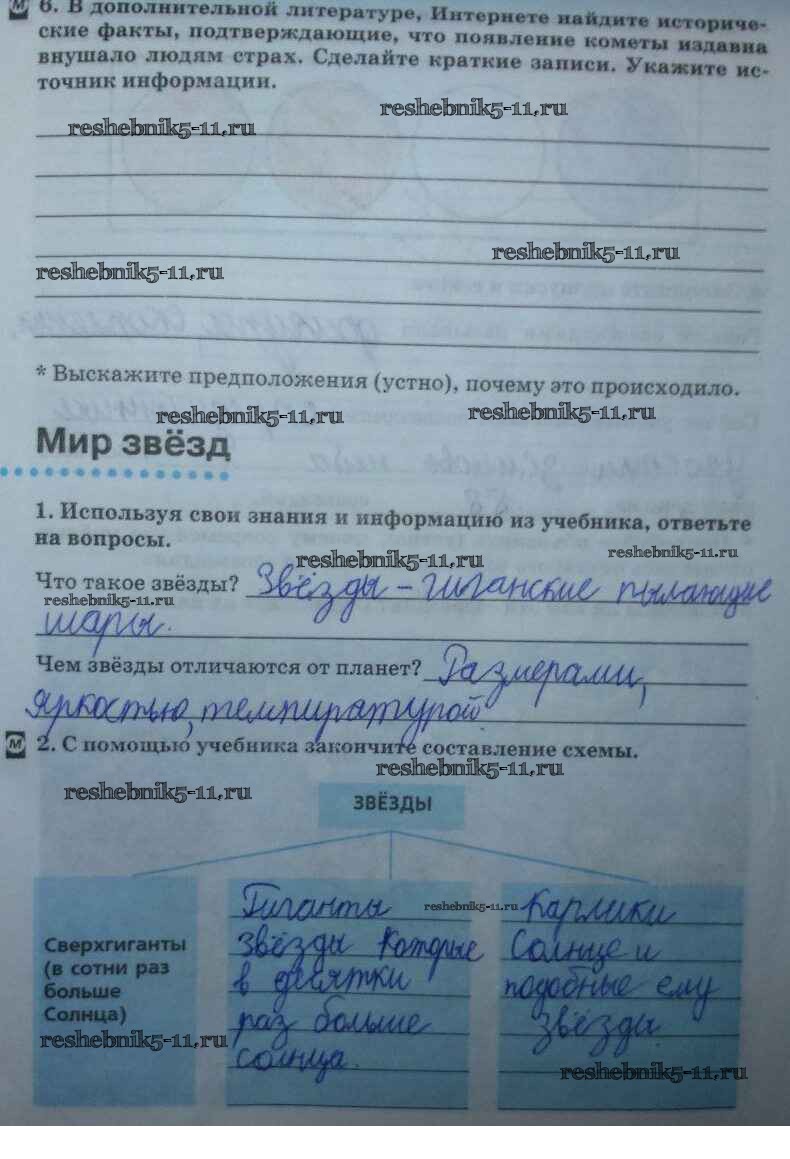 6. В дополнительной литературе, Интернете найдите историче-
ские факты, подтверждающие, что появление кометы издавна
внушало людям страх. Сделайте краткие записи. Укажите ис-
точник информации.
reshebnik5-11.ru
reshebnik5-11.ru
reshebnik5-11.ru
reshebnik5-11.ru
* Выскажите предположения (устно), почему это происходило.
reshebnik5-11.ru
reshebnik5-11.ru
Мир звёзд
1. Используя свои знания и информацию из учебника, ответьте
на вопросы.
reshebnik5-11.ru
reshebnik5-11.ru
Что такое звёзды? Звёзды – гиганские пылающие
reshebnik5-11.ru
шары.
Чем звёзды отличаются от планет? Размерами,
яркостью, темпиратурой
М 2. С помощью учебника закончите составление схемы.
reshebnik5-11.ru
reshebnik5-11.ru
ЗВЁЗДЫ
Сверхгиганты
(в сотни раз
больше
Солнца)
reshebnik5-11.ru
Гиганты
звёзды которые
в десятки
раз больше
солнца.
reshebnik5-11.ru
Карлики
Солнце и
подобные ему
звёзды
reshebnik5-11.ru